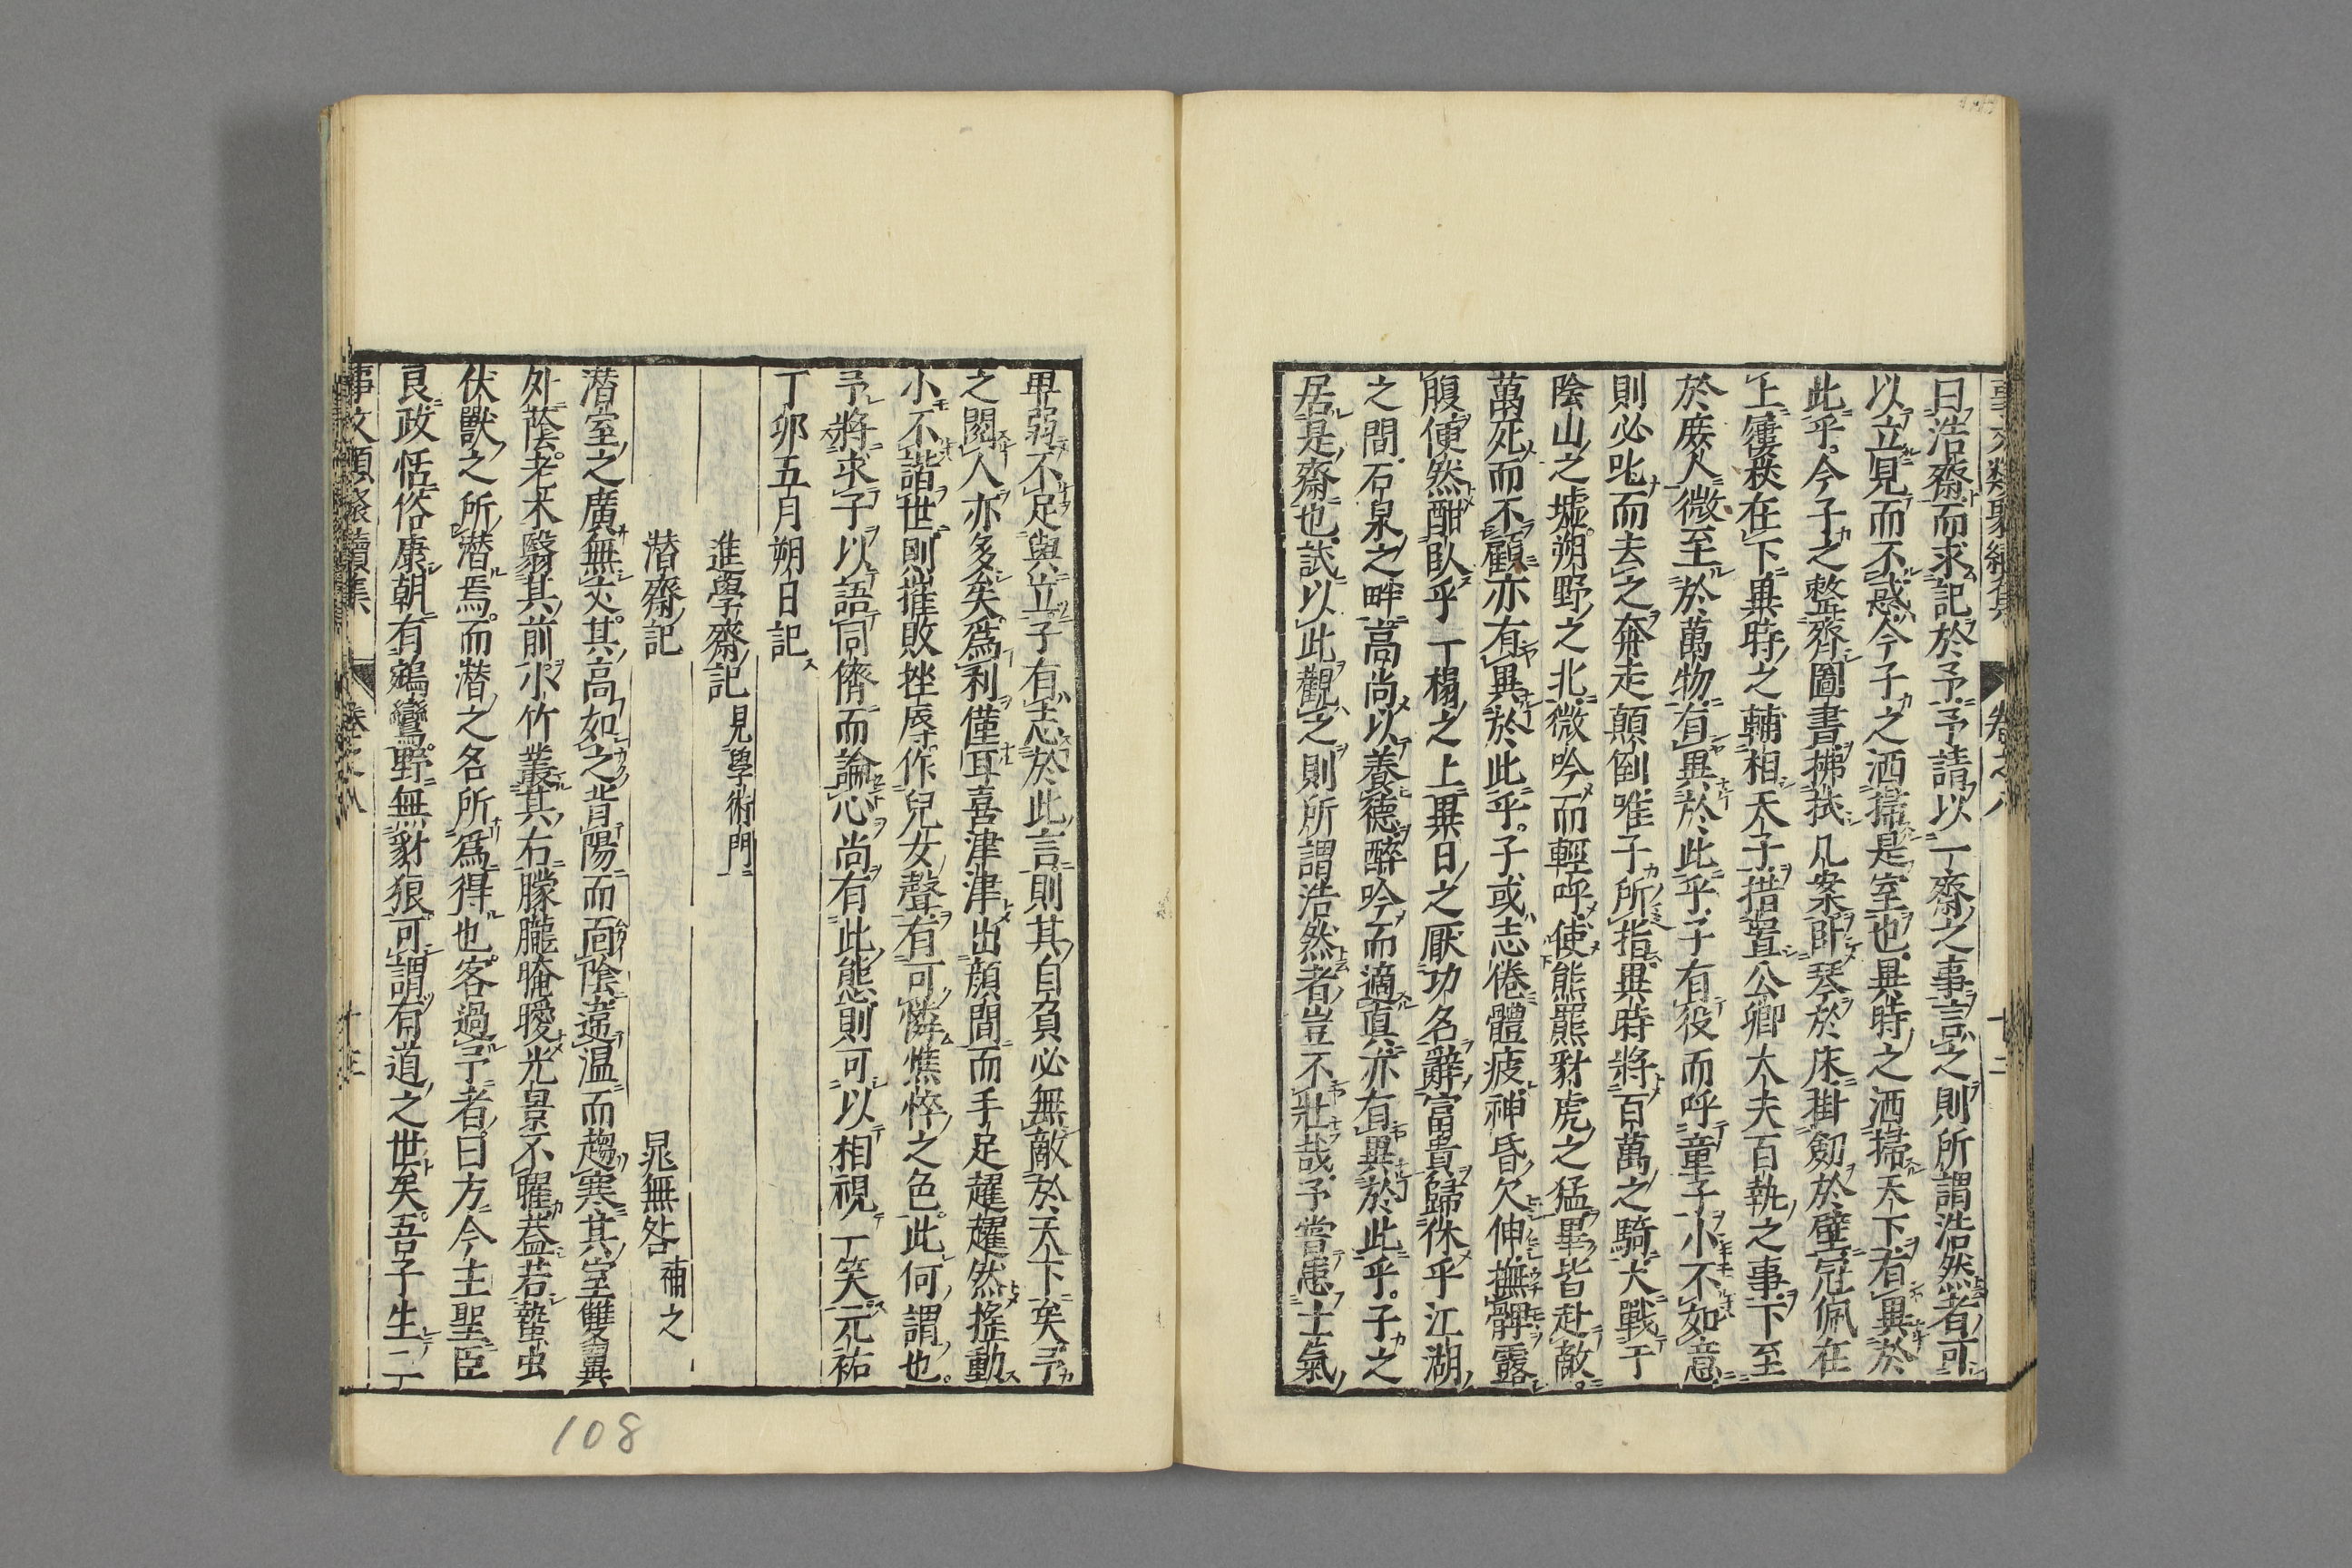 曰浩齋而求記於予予請以一齋之事言之則所謂浩然者可
以立見而不惑今子之洒掃是室也異時之洒掃天下者異於
此乎今子之整齊圖書拂拭几案卧琴於床掛劔於壁冠佩在
上屨袂在下異時之輔相天子措置公卿大夫百執之事下至
於庻人微至於萬物有異於此乎子有役而呼童子小不如意
則必叱而去之奔走顛倒唯子所指異時將百萬之騎大戰于
陰山之墟朔野之北微吟而輕呼使熊羆豺虎之猛畢皆赴敵
萬死而不顧亦有異於此乎子或志倦體疲神昏欠伸撫髀露
腹便然酣臥乎一榻之上異日之厭功名辭富貴歸休乎江湖
之間石泉之畔高尚以養德醉吟而適真亦有異於此乎子之
居是齋也試以此觀之則所謂浩然者豈不壯哉予嘗患士氣
卑弱不足與立子有志於此言則其自負必無敵於天下矣予
之閱人亦多矣爲利僅耳喜津津出顔間而手足趯趯然搖動
小不諧世則摧敗挫辱作兒女聲有可憐憔悴之色此何謂也
予將求子以語同儕而論心尚有此態則可以相視一笑元祐
丁卯五月朔日記
進學齋記見學術門
潜齋記 晁無咎補之
潜室之廣無丈其高如之背陽而面陰違温而趨寒其室雙翼
外蔭老木翳其前小竹叢其右朦朧晻曖光景不曜葢若蟄虫
伏獸之所潜焉而潜之名所爲得也客過予者曰方今主聖臣
良政恬俗康朝有鵷鸞野無豺狼可謂有道之世矣吾子生二
事文類聚續集 卷之八 十三
108